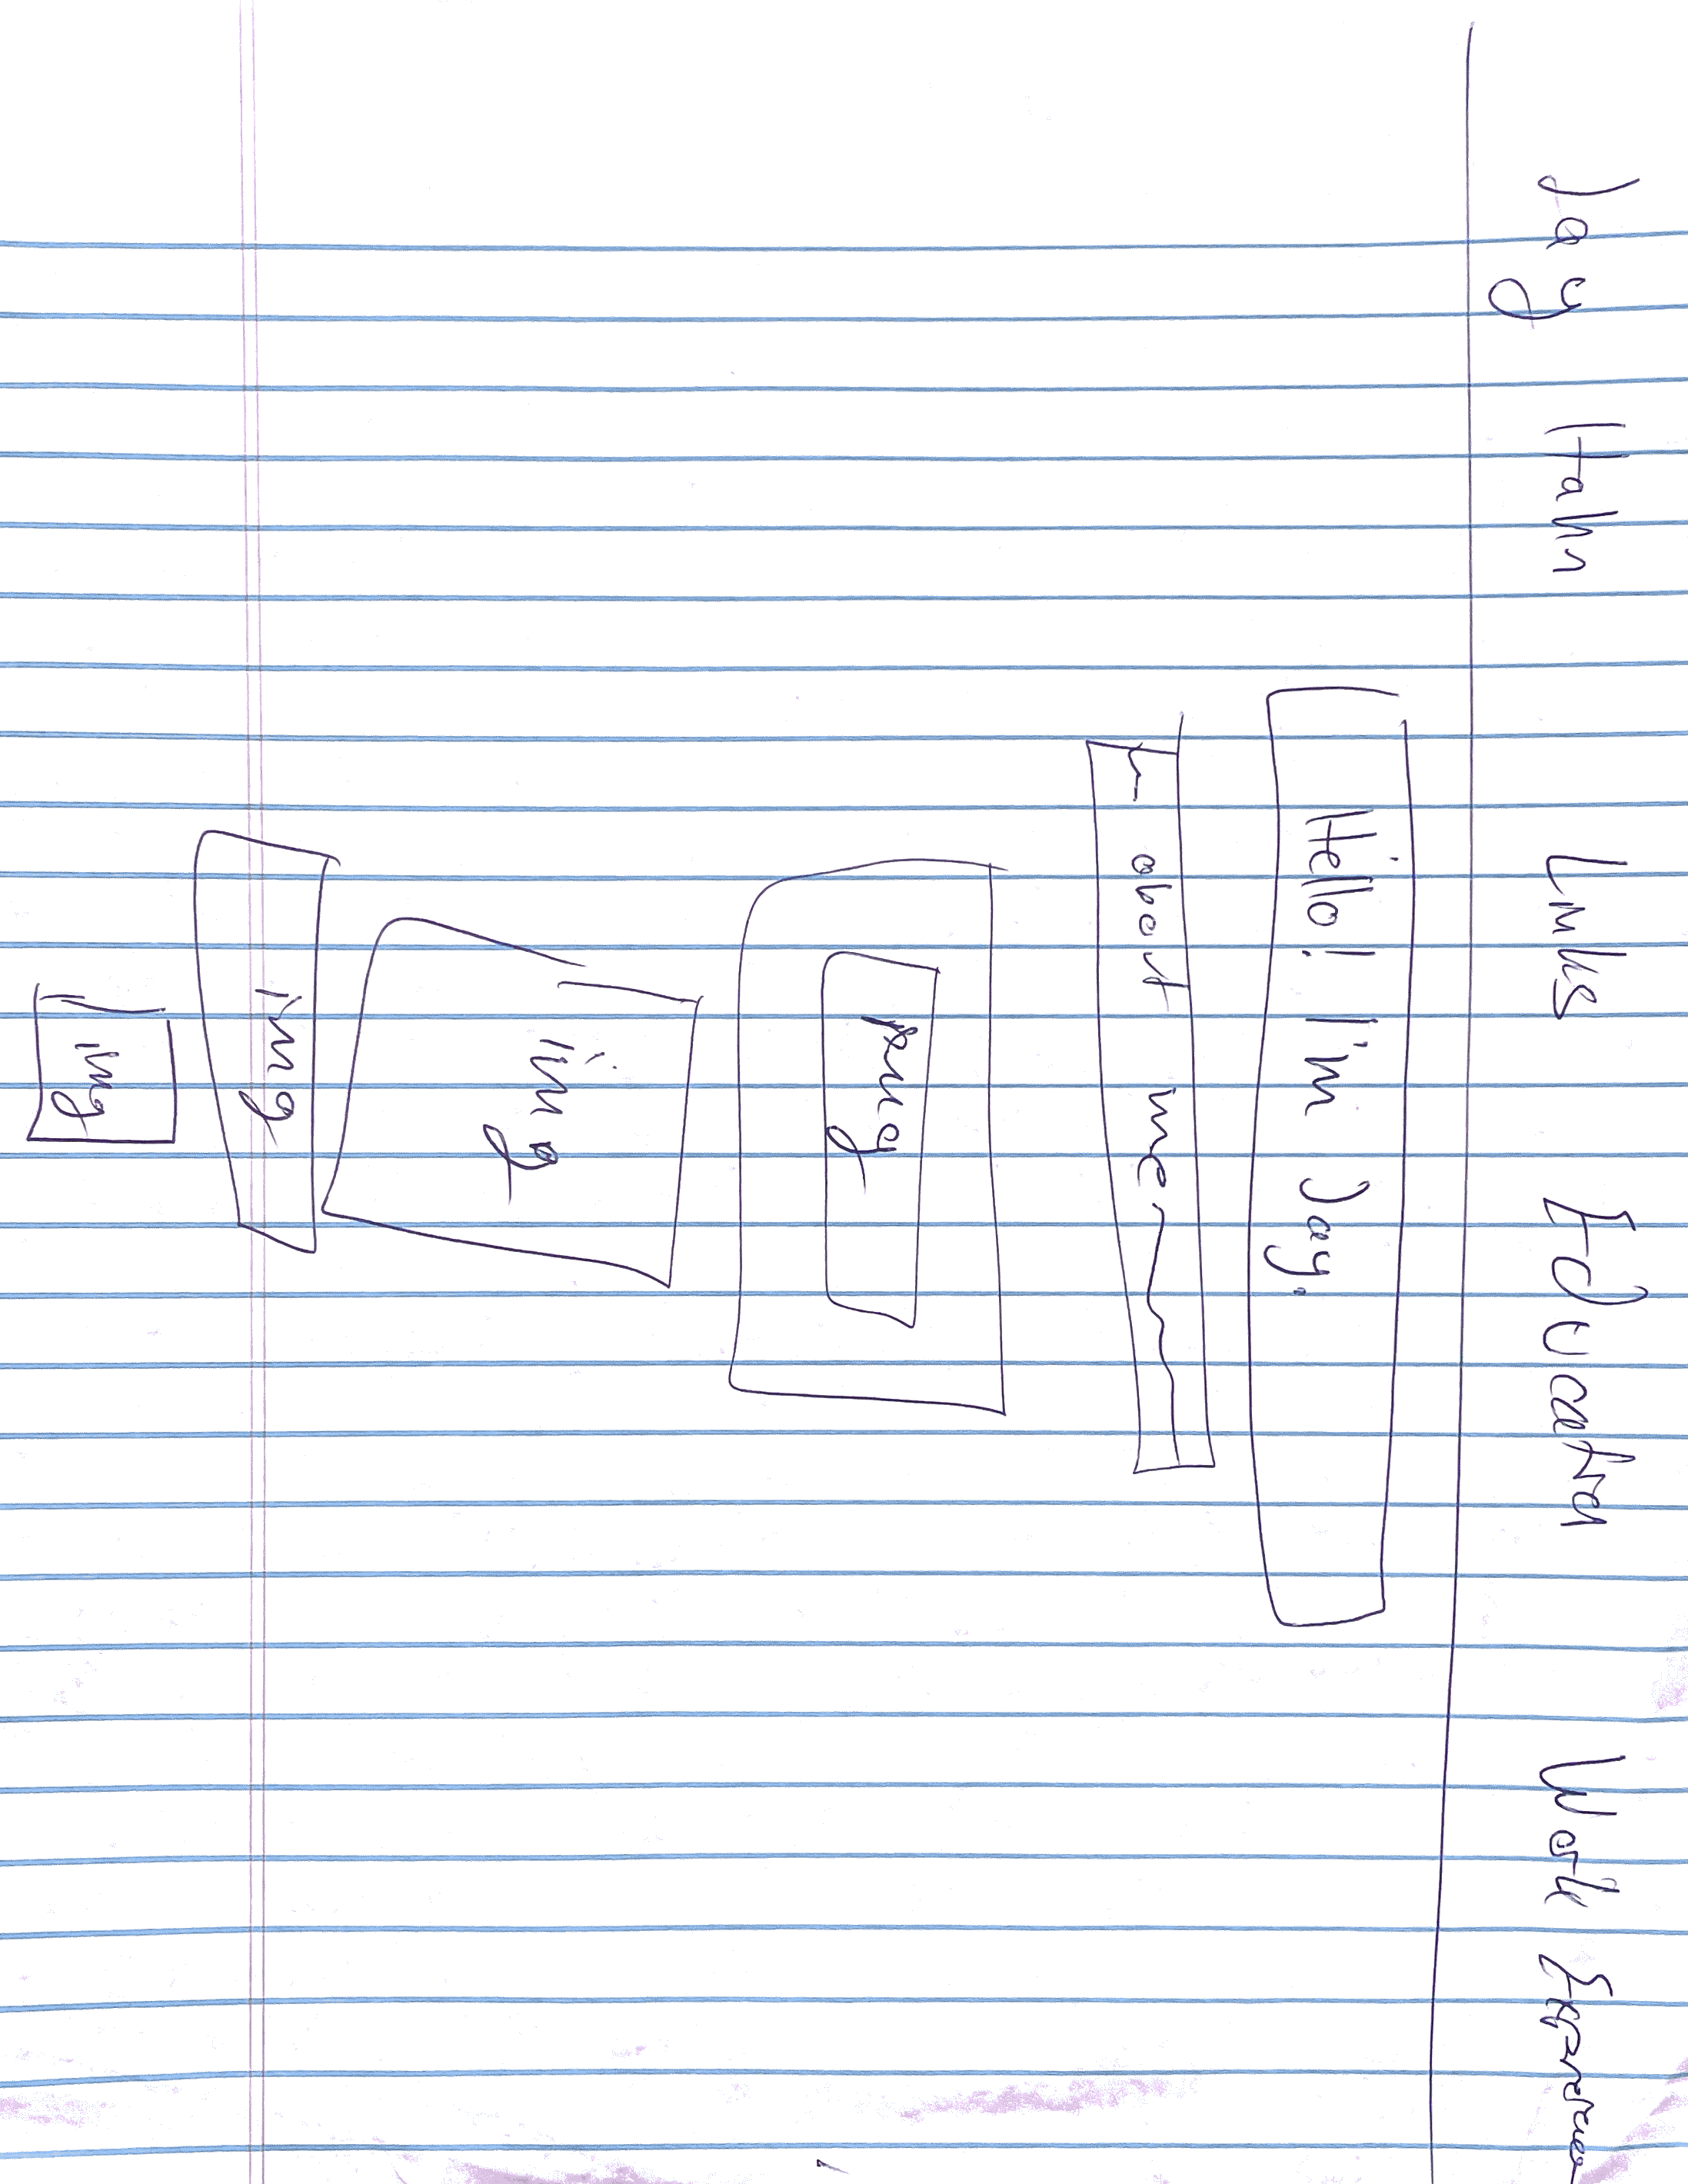 Jay Hahn Links Education Work Experience
Hello! I'm Jay.
about me
img
img
img